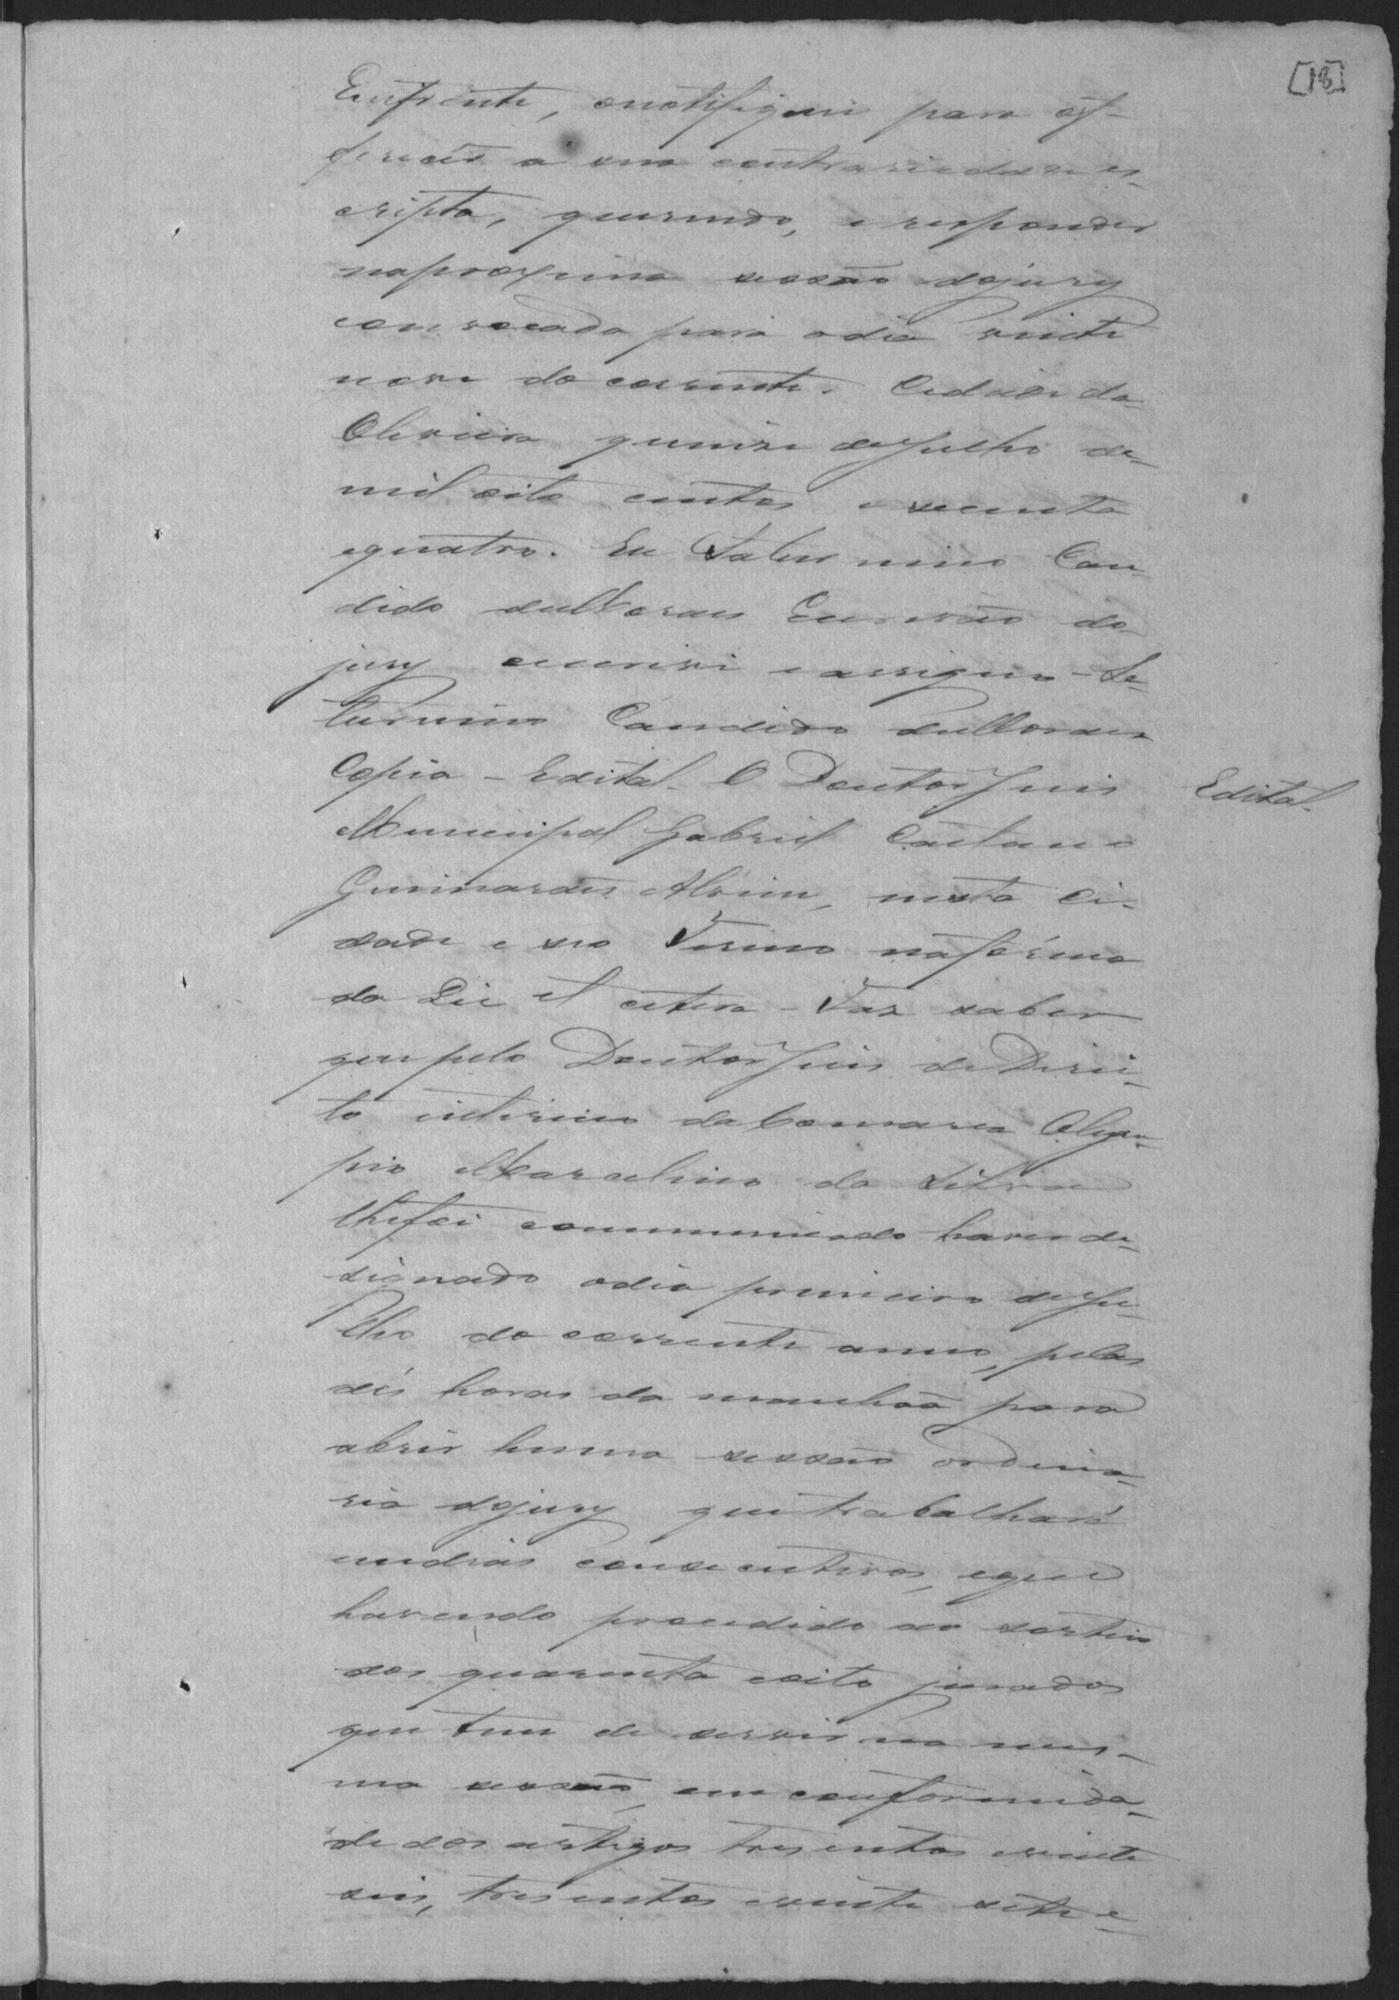 [18]
Emfrente, enotifiquei para of-
ferecer a sua contrariedade es-
cripta, querendo, e responder
naproxima sessão dojury
convocada para odia vinte
nove do corrente. Cidade da
Oliveira quinze deJulho de
mil oito centos e secenta
equatro. Eu Saturnino Can-
dido deMoraes Escrivão do
jury escrevi e assigno - Sa-
turnino Candido deMoraes
Copia - Edital. O Doutor Juis
Municipal Gabriel Caetano
Guimarães Alvim, nesta Ci-
dade e seo Termo naforma
da Lei et cetera - Faz saber
que pelo Doutor Juis de Direi-
to interino da Comarca Olym-
pio Marcelino da Silva
lhefoi communicado haver de-
signado odia primeiro deJu-
lho do corrente anno, pelas
dés horas da manhaã para
abrir huma sessão ordina-
ria dojury que trabalhará
emdias consecutivos, eque
havendo procedido ao sorteio
dos quarenta eoito jurados
que tem de servir na mes-
ma sessão, em conformida-
de dos artigos tresentos evinte
seis, tresentos evinte sete e
Edital.